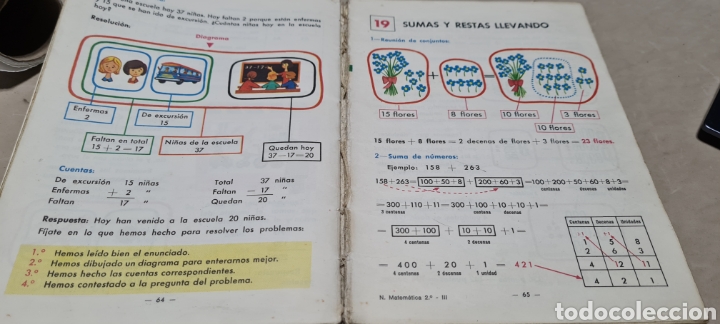 escuela hoy 37 niñas. Hoy faltan 2 porque están enfermas
y 15 que se han ido de excursión. ¿Cuántas niñas hay en la escuela
hoy?
Resolución:
Diagrama
Enfermas
2
De excursión
15
Faltan en total
15 + 2 = 17
Niñas de la escuela
37
Quedan hoy
37 - 17 = 20
Cuentas:
De excursión 15 niñas Total 37 niñas
Enfermas + 2 " Faltan - 17 "
Faltan 17 " Quedan 20 "
Respuesta: Hoy han venido a la escuela 20 niñas.
Fíjate en lo que hemos hecho para resolver los problemas:
1.º Hemos leído bien el enunciado.
2.º Hemos dibujado un diagrama para enterarnos mejor.
3.º Hemos hecho las cuentas correspondientes.
4.º Hemos contestado a la pregunta del problema.
— 64 —
19 SUMAS Y RESTAS LLEVANDO
1.—Reunión de conjuntos:
+ =
15 flores 8 flores 10 flores 3 flores
10 flores
15 flores + 8 flores = 2 decenas de flores + 3 flores = 23 flores.
2.—Suma de números:
Ejemplo: 158 + 263
158+263= 100+50+8 + 200+60+3 =100+200+50+60+8+3=
centenas decenas unidades
=300+110+11=300+100+10+10+1=
3 centenas
= 300+100 + 10+10 + 1=
4 centenas 2 decenas
= 400 + 20 + 1 = 421
4 centenas 2 decenas 1 unidad
Centenas Decenas Unidades
+1 +1
1 5 8
2 6 3
4 12 11
4 2 1
N. Matemática 2.º - III
— 65 —
todocoleccion